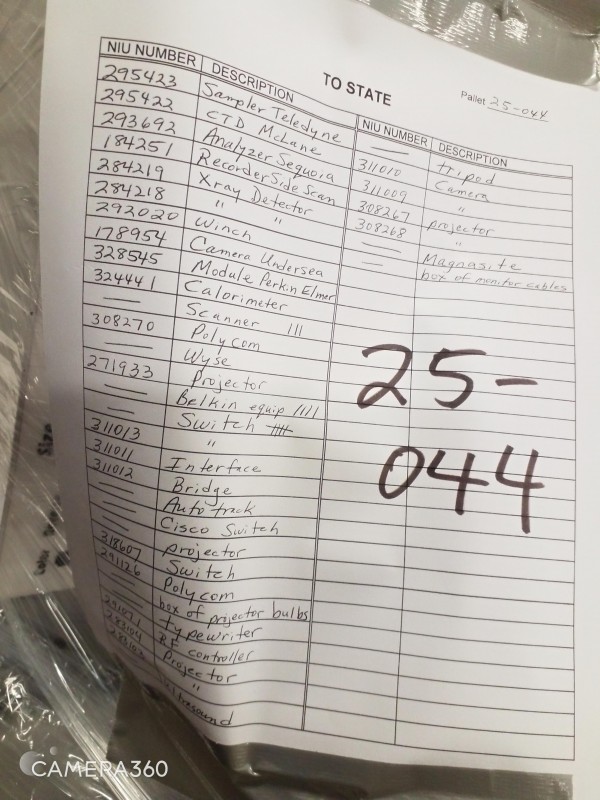 TO STATE
Pallet 25-044
NIU NUMBER DESCRIPTION
295423 Sampler Teledyne
295422 CTD McLane
293692 Analyzer Sequoia
184251 Recorder Side Scan
284219 Xray Detector
284218 " "
292020 Winch
178954 Camera Undersea
328545 Module Perkin Elmer
324441 Calorimeter
— Scanner III
308270 Polycom
— Wyse
271933 Projector
— Belkin equip IIII
— Switch
311013 "
311011 Interface
311012 Bridge
— Auto track
— Cisco Switch
318607 projector
291126 Switch
— Polycom
— box of projector bulbs
typewriter
283104 RF controller
283103 Projector
"
NIU NUMBER DESCRIPTION
— tripod
311010 Camera
311009 "
308267 projector
308268 "
— Magnasite
— box of monitor cables
25-
044
CAMERA360